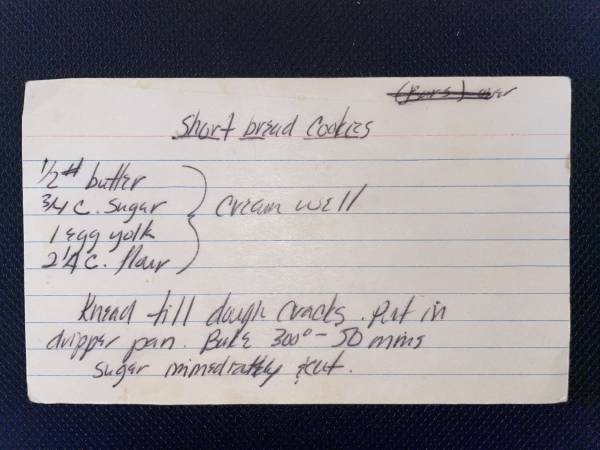 (Bars) over
Short bread Cookies
1/2 # butter
3/4 c. sugar
1 egg yolk
2 1/4 c. flour
Cream well
Knead till dough cracks. Put in
dripper pan. Bake 300° - 50 mins
sugar immediately & cut.